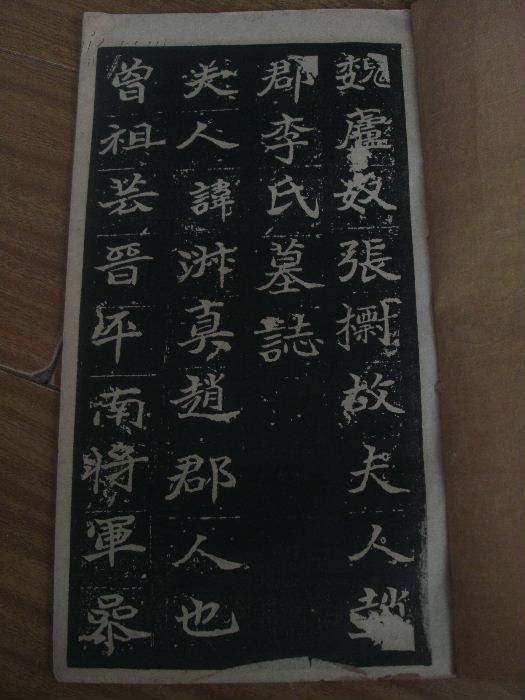 魏盧奴張故夫人趙
郡李氏墓誌
夫人諱淋真趙郡人也
曾祖芸晉平南將軍